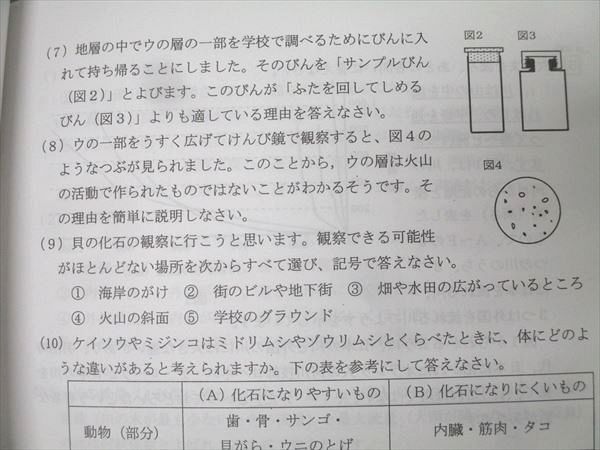 図2 図3
(7) 地層の中でウの層の一部を学校で調べるためにびんに入
れて持ち帰ることにしました。そのびんを「サンプルびん
(図2)」とよびます。このびんが「ふたを回してしめる
びん(図3)」よりも適している理由を答えなさい。
(8) ウの一部をうすく広げてけんび鏡で観察すると、図4の
ようなつぶが見られました。このことから，ウの層は火山
の活動で作られたものではないことがわかるそうです。そ
の理由を簡単に説明しなさい。
図4
(9) 貝の化石の観察に行こうと思います。観察できる可能性
がほとんどない場所を次からすべて選び、記号で答えなさい。
① 海岸のがけ ② 街のビルや地下街 ③ 畑や水田の広がっているところ
④ 火山の斜面 ⑤ 学校のグラウンド
(10) ケイソウやミジンコはミドリムシやゾウリムシとくらべたときに、体にどのよ
うな違いがあると考えられますか。下の表を参考にして答えなさい。
(A) 化石になりやすいもの (B) 化石になりにくいもの
動物(部分) 歯・骨・サンゴ・ 内臓・筋肉・タコ
貝がら・ウニのとげ